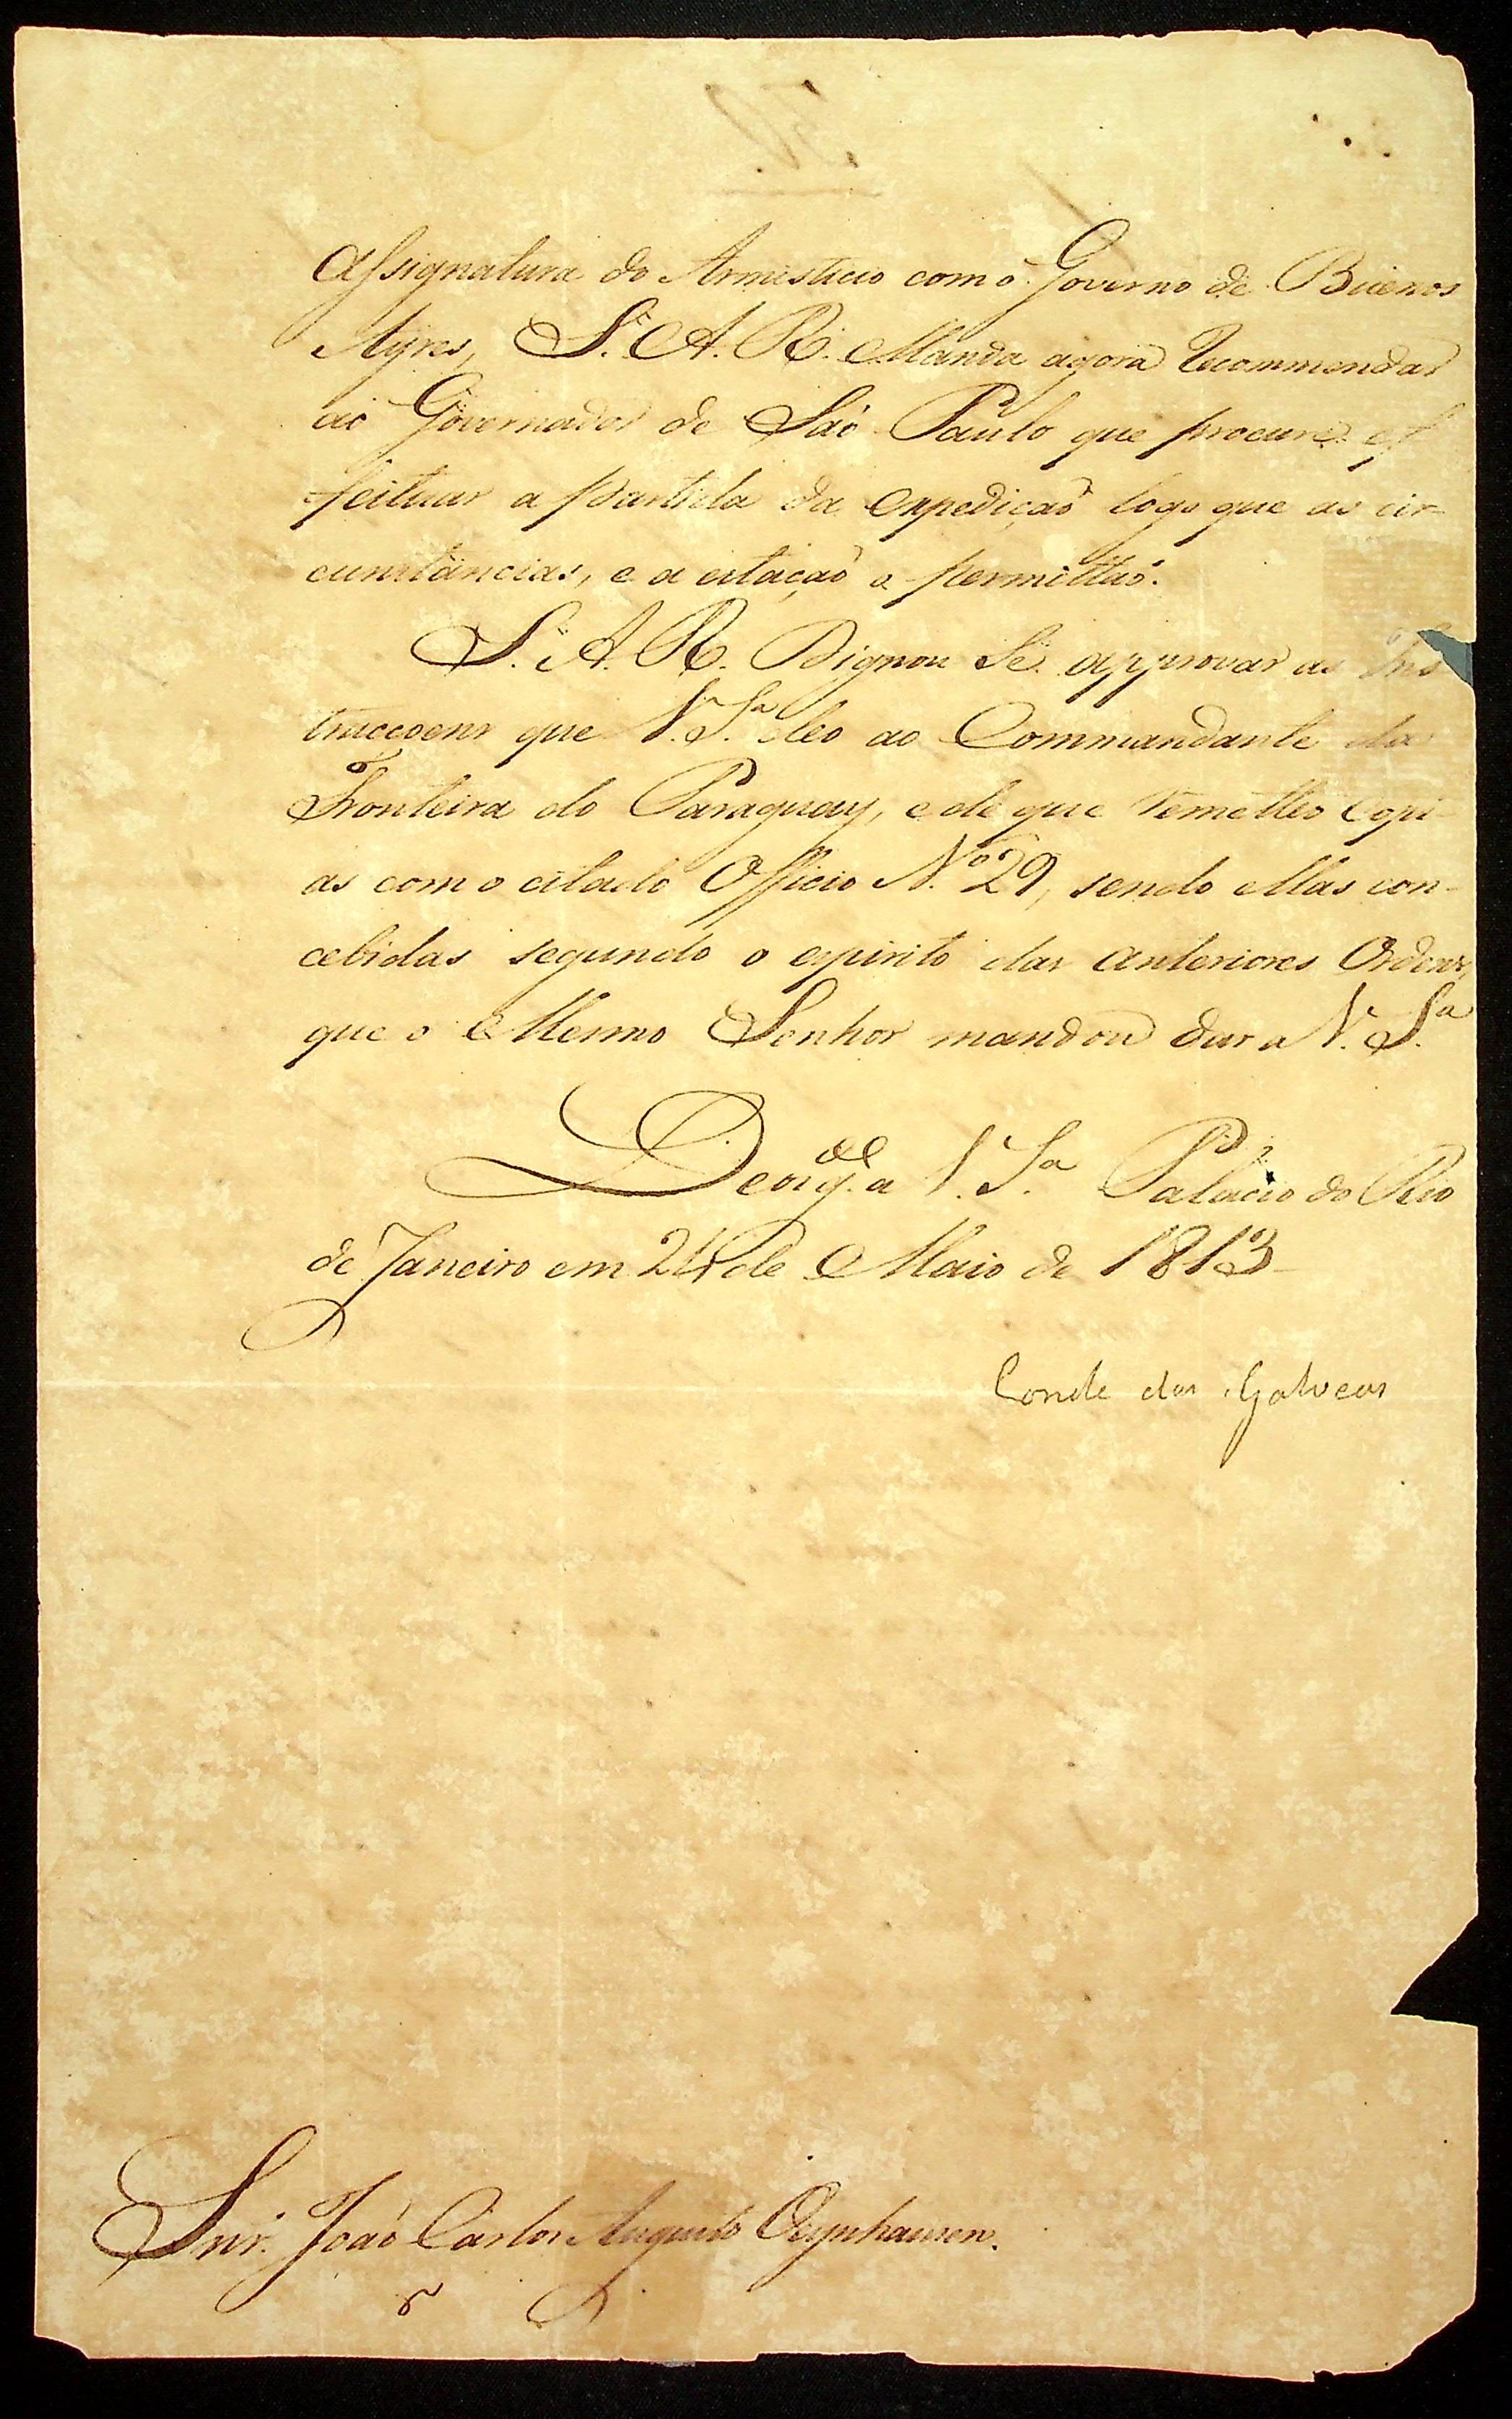 Assignatura do Armisticio com o Governo de Buenos
Ayres, S. A. R. Manda agora Recommendar
ao Governador de Saõ Paulo que procure ef
feituar a partida da Expediçaõ logo que as cir-
cunstancias, e a estaçaõ o permittaõ.
S. A. R. Dignou Se approvar as Ins
trucçoens que V. S.ª deo ao Commandante da
Fronteira do Paraguay, e de que remetteo Copi-
as com o citado Officio N.º 29, sendo ellas con-
cebidas segundo o espirito das anteriores Ordens,
que o Mesmo Senhor mandou dar a V. S.ª
Deos g.de a V. S.ª Palacio do Rio
de Janeiro em 24 de Maio de 1813
Conde das Galveas
Snr. Joaõ Carlos Augusto Oeynhausen.